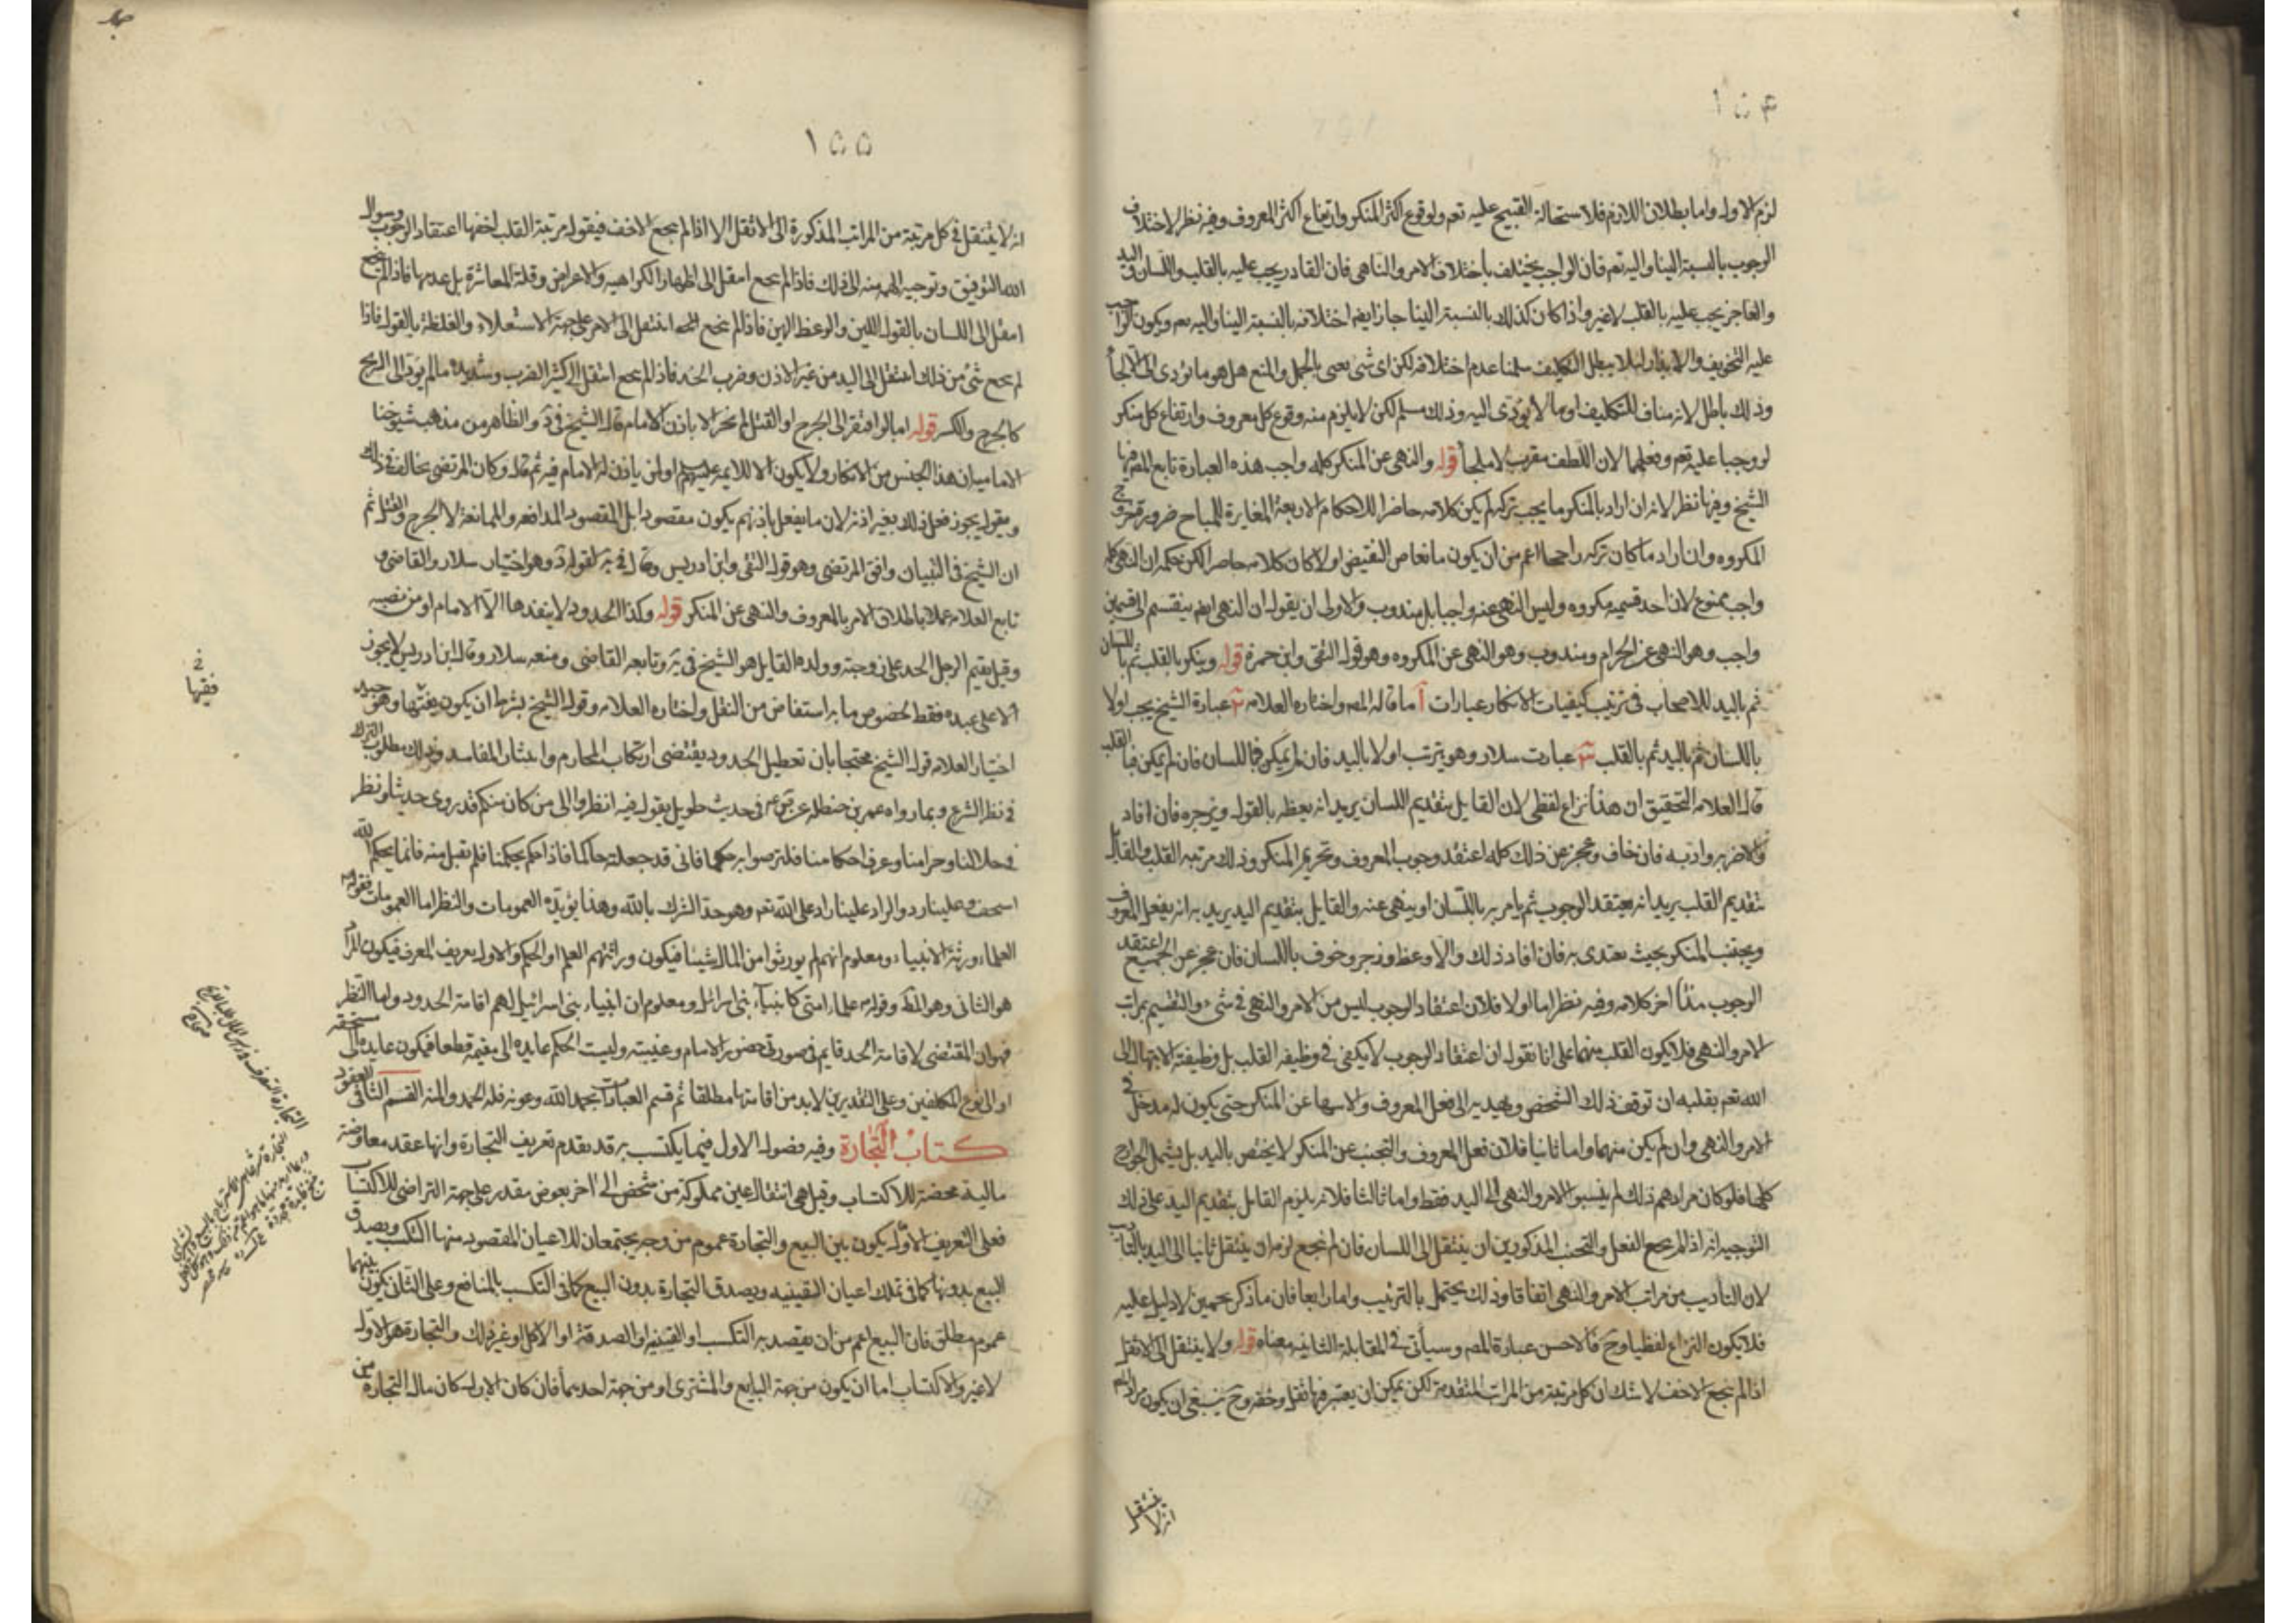 ۱۵۴
لزم الاول واما بطلان اللازم فلاستحالة القبيح عليه تعم ولوقوع اكثر المنكر وارتفاع اكثر المعروف وفيه نظر لاختلاف
الوجوب بالنسبة الينا واليه تعم فان الواجب يختلف باختلاف الامر والناهى فان القادر يجب عليه بالقلب واللسان واليد
والعاجز يجب عليه بالقلب لاغير واذا كان كذلك بالنسبة الينا جاز ايضا اختلافه بالنسبة الينا واليه تعم ويكون الواجب
عليه التخويف والانذار لئلا يبطل التكليف سلمنا عدم اختلافه لكن اى شى يعنى بالحمل والمنع هل هو ما يؤدى الى الالجاء
وذلك باطل لانه مناف للتكليف او ما لا يؤدى اليه وذلك مسلم لكن لا يلزم منه وقوع كل معروف وارتفاع كل منكر
لو وجبا عليه تعم وفعلهما لان اللطف مقرب لا ملجأ قوله والنهى عن المنكر كله واجب هذه العبارة تابع المص فيها
الشيخ وفيها نظر لانه ان اراد بالمنكر ما يجب تركه لم يكن كلامه حاصرا للاحكام الاربعة المغايرة للمباح ضرورة خروج
المكروه وان اراد ما كان تركه راجحا اعم من ان يكون مانعا من النقيض او لا كان كلامه حاصرا لكن حكمه ان النهى كله
واجب ممنوع لان احد قسميه مكروه وليس النهى عنه واجبا بل مندوب والاولى ان يقول ان النهى ايضا ينقسم الى قسمين
واجب وهو النهى عن الحرام ومندوب وهو النهى عن المكروه وهو قول التقى وابن حمزة قوله وينكر بالقلب ثم باللسان
ثم باليد للاصحاب فى ترتيب كيفيات الانكار عبارات آ ما قاله المص واختاره العلامه ٢ عبارة الشيخ يجب اولا
باللسان ثم باليد ثم بالقلب ٣ عبارت سلار وهو يترتب اولا باليد فان لم يمكن فباللسان فان لم يمكن فبالقلب
قال العلامه التحقيق ان هذا نزاع لفظى لان القايل بتقديم اللسان يريد انه يعظه بالقول ويزجره فان افاد
والا ضربه وادبه فان خاف وعجز عن ذلك كله اعتقد وجوب المعروف وتحريم المنكر وذلك مرتبه القلب والقايل
بتقديم القلب يريد انه يعتقد الوجوب ثم يامر به باللسان او ينهى عنه والقايل بتقديم اليد يريد به انه يفعل المعروف
ويجتنب المنكر بحيث يقتدى به فان افاد ذلك والا وعظ وزجر وخوف باللسان فان عجز عن الجميع اعتقد
الوجوب هذا اخر كلامه وفيه نظر اما اولا فلان اعتقاد الوجوب ليس من الامر والنهى فى شىء والتقسيم بمراتب
الامر والنهى فلا يكون القلب منهما على انا نقول ان اعتقاد الوجوب لا يكفى فى وظيفه القلب بل وظيفة الابتهال الى
الله تعم بقلبه ان توقف ذلك الشخص ويهديه الى فعل المعروف والانتهاء عن المنكر حتى يكون له مدخل فى
الامر والنهى وان لم يكن منهما واما ثانيا فلان فعل المعروف والتجنب عن المنكر لا يختص باليد بل يشمل الجوارح
كلها فلو كان مرادهم ذلك لم ينسبوا الامر والنهى الى اليد فقط واما ثالثا فلانه يلزم القايل بتقديم اليد على ذلك
التوجيه انه اذا لم ينجع الفعل والتجنب المذكورين ان ينتقل الى اللسان فان لم ينجع لزم ان ينتقل ثانيا الى اليد بالتاديب
لان التاديب من مراتب الامر والنهى اتفاقا وذلك يختل بالترتيب واما رابعا فان ما ذكر تخمين لا دليل عليه
فلا يكون النزاع لفظيا وح فالاحسن عبارة المص وسيأتى فى المقابلة الثانيه معناه قوله ولا ينتقل الى الاثقل
اذا لم ينجع الاخف لا شك ان كل مرتبة من المراتب المتقدمة لكن يمكن ان يعتبر فيها ثقل وخفه وح ينبغى ان يكون مراد المص
انه لا ينتقل
۱۵۵
انه لا ينتقل فى كل مرتبة من المراتب المذكورة الى الاثقل الا اذا لم ينجع الاخف فيقول مرتبة القلب اخفها اعتقاد الوجوب وسوال
الله التوفيق وتوجيه الهمه منه الى ذلك فاذا لم ينجع انتقل الى اظهار الكراهيه والاعراض وقلة المعاشرة بل عدمها فاذا لم ينجع
انتقل الى اللسان بالقول اللين والوعظ الهين فاذا لم ينجع انتقل الى الامر على جهة الاستعلاء والغلظة بالقول فاذا
لم ينجع شئ من ذلك انتقل الى اليد من غير الاذن وضرب الخد فاذا لم ينجع انتقل الى كثير الضرب وشديده ما لم يؤد الى الجرح
كالجرح والكسر قوله اما لو افتقر الى الجرح او القتل لم يجز الا باذن الامام قال الشيخ فى د والظاهر من مذهب شيوخنا
الاماميه ان هذا الجنس من الانكار ولا يكون الا للائمه عليهم او لمن ياذن له الامام فيه ثم قال وكان المرتضى يخالف فى ذلك
ويقول يجوز فعل ذلك بغير اذنه لان ما يفعل باذنهم يكون مقصودا بل المقصود المدافعه والممانعة لا الجرح والقتل ثم
ان الشيخ فى التبيان وافق المرتضى وهو قول التقى وابن ادريس وقال فى يه لقوله د وهو اختيار سلار والقاضى و
تابع العلامه عملا باطلاق الامر بالمعروف والنهى عن المنكر قوله وكذا الحدود لا ينفذها الا الامام او من نصبه
وقيل يقيم الرجل الحد على زوجته وولده القايل هو الشيخ فى يه وتابعه القاضى ومنعه سلار وقال ابن ادريس لا يجوز
الا على عبده فقط لخصوص ما به استفاض من النقل واختاره العلامه وقول الشيخ بشرط ان يكون فقيها وهو جيد
اختيار العلامه قول الشيخ محتجا بان تعطيل الحدود يقتضى ارتكاب المحارم وانتشار المفاسد وذلك مطلوب الترك
فى نظر الشرع وبما رواه عمر بن حنظله عن ص ع فى حديث طويل يقول فيه انظروا الى من كان منكم قد روى حديثنا ونظر
فى حلالنا وحرامنا وعرف احكامنا فلترضوا به حكما فانى قد جعلته حاكما فاذا حكم بحكمنا فلم يقبل منه فانما بحكم الله
استخف وعلينا رد والراد علينا راد على الله تعم وهو حد الشرك بالله وهذا يؤيده العمومات والنظر اما العمومات فقوله ع
العلماء ورثة الانبياء ومعلوم انهم لم يورثوا من المال شيئا فيكون وراثتهم العلم او الحكم والاول تعريف المعرف فيكون المراد
هو الثانى وهو المط وقوله ع علماء امتى كانبياء بنى اسرائيل ومعلوم ان انبياء بنى اسرائيل لهم اقامة الحدود واما النظر
فهو ان المقتضى لاقامة الحد قايم فى صورتى حضور الامام وغيبته وليست الحكم عايده الى مقيمه قطعا فيكون عايده الى مستحقه
او الى نوع المكلفين وعلى التقديرين لابد من اقامتها مطلقا ثم قسم العبادات بحمد الله وعونه فله الحمد والمنه القسم الثانى فى العقود
كتاب التجارة وفيه فصول الاول فيما يكتسب به قد يقدم تعريف التجارة وانها عقد معاوضة
مالية محضة للاكتساب وقيل هى انتقال عين مملوكة من شخص الى اخر بعوض مقدر على جهة التراضى للاكتساب
فعلى التعريف الاول يكون بين البيع والتجارة عموم من وجه يجتمعان للاعيان المقصود منها التكسب ويصدق
البيع بدونها كما فى تملك اعيان القنيه ويصدق التجارة بدون البيع كما فى التكسب بالمنافع وعلى الثانى يكون بينهما
عموم مطلق فان البيع اعم من ان يقصد به التكسب او القنيه او الصدقة او الاكل او غير ذلك والتجارة هو الاول
لاغير والاكتساب اما ان يكون من جهة البايع والمشترى او من جهة احدهما فان كان الاول كان مال التجارة من
فقيها